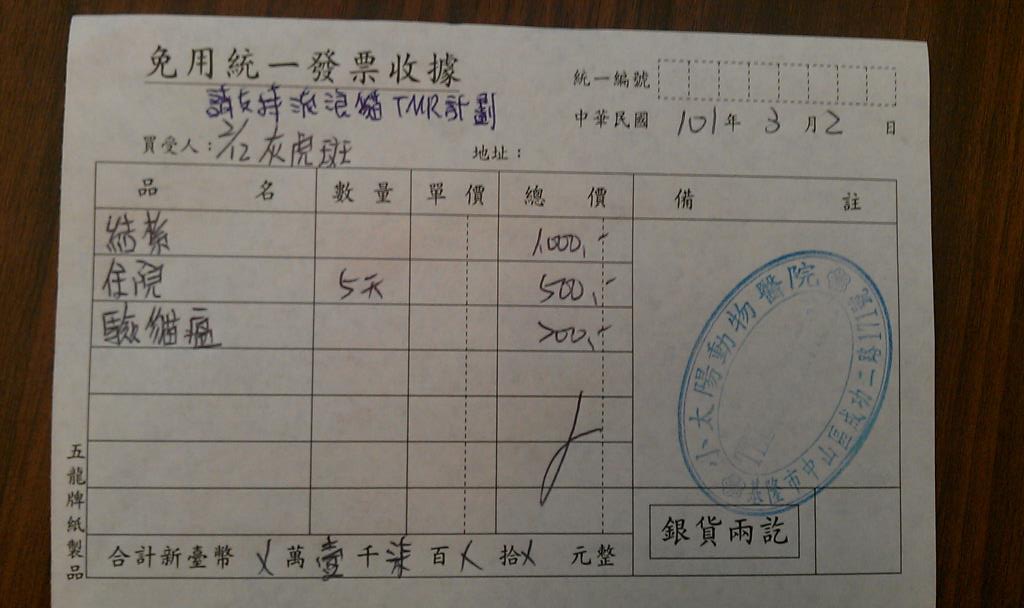 免用統一發票收據
統一編號
請支持流浪貓TNR計劃
中華民國 101年 3月2日
買受人：2/12灰虎班 地址：
品名 數量 單價 總價 備註
結紮 1000,-
住院 5天 500,-
驗貓瘟 200,-
小太陽動物醫院
基隆市中山區成功二路
銀貨兩訖
合計新臺幣 X萬壹千柒百X拾X元整
五龍牌紙製品